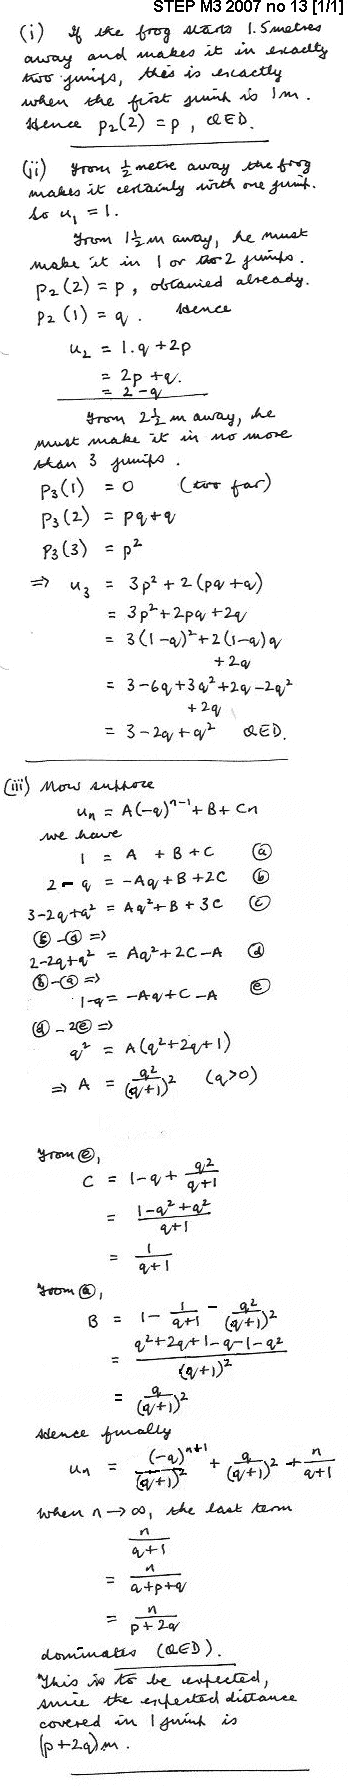 STEP M3 2007 no 13 [1/1]
(i) If the frog starts 1.5 metres
away and makes it in exactly
two jumps, this is exactly
when the first jump is 1m.
Hence p₂(2) = p, QED.
(ii) From ½ metre away the frog
makes it certainly with one jump.
So u₁ = 1.
From 1½ m away, he must
make it in 1 or 2 jumps.
p₂(2) = p, obtained already.
p₂(1) = q. Hence
u₂ = 1.q + 2p
= 2p + q.
= 2 - q
From 2½ m away, he
must make it in no more
than 3 jumps.
p₃(1) = 0 (too far)
p₃(2) = pq + q
p₃(3) = p²
⇒ u₃ = 3p² + 2(pq + q)
= 3p² + 2pq + 2q
= 3(1-q)² + 2(1-q)q
+ 2q
= 3 - 6q + 3q² + 2q - 2q²
+ 2q
= 3 - 2q + q² QED.
(iii) Now suppose
uₙ = A(-q)ⁿ⁻¹ + B + Cn
we have
1 = A + B + C ⓐ
2 - q = -Aq + B + 2C ⓑ
3 - 2q + q² = Aq² + B + 3C ⓒ
ⓒ - ⓐ ⇒
2 - 2q + q² = Aq² + 2C - A ⓓ
ⓑ - ⓐ ⇒
1 - q = -Aq + C - A ⓔ
ⓓ - 2ⓔ ⇒
q² = A(q² + 2q + 1)
⇒ A = q²/(q+1)² (q>0)
From ⓔ,
C = 1 - q + q²/(q+1)
= (1 - q² + q²)/(q+1)
= 1/(q+1)
From ⓐ,
B = 1 - 1/(q+1) - q²/(q+1)²
= (q² + 2q + 1 - q - 1 - q²)/(q+1)²
= q/(q+1)²
Hence finally
uₙ = (-q)ⁿ⁺¹/(q+1)² + q/(q+1)² + n/(q+1)
when n → ∞, the last term
n/(q+1)
= n/(q+p+q)
= n/(p+2q)
dominates (QED).
This is to be expected,
since the expected distance
covered in 1 jump is
(p+2q)m.